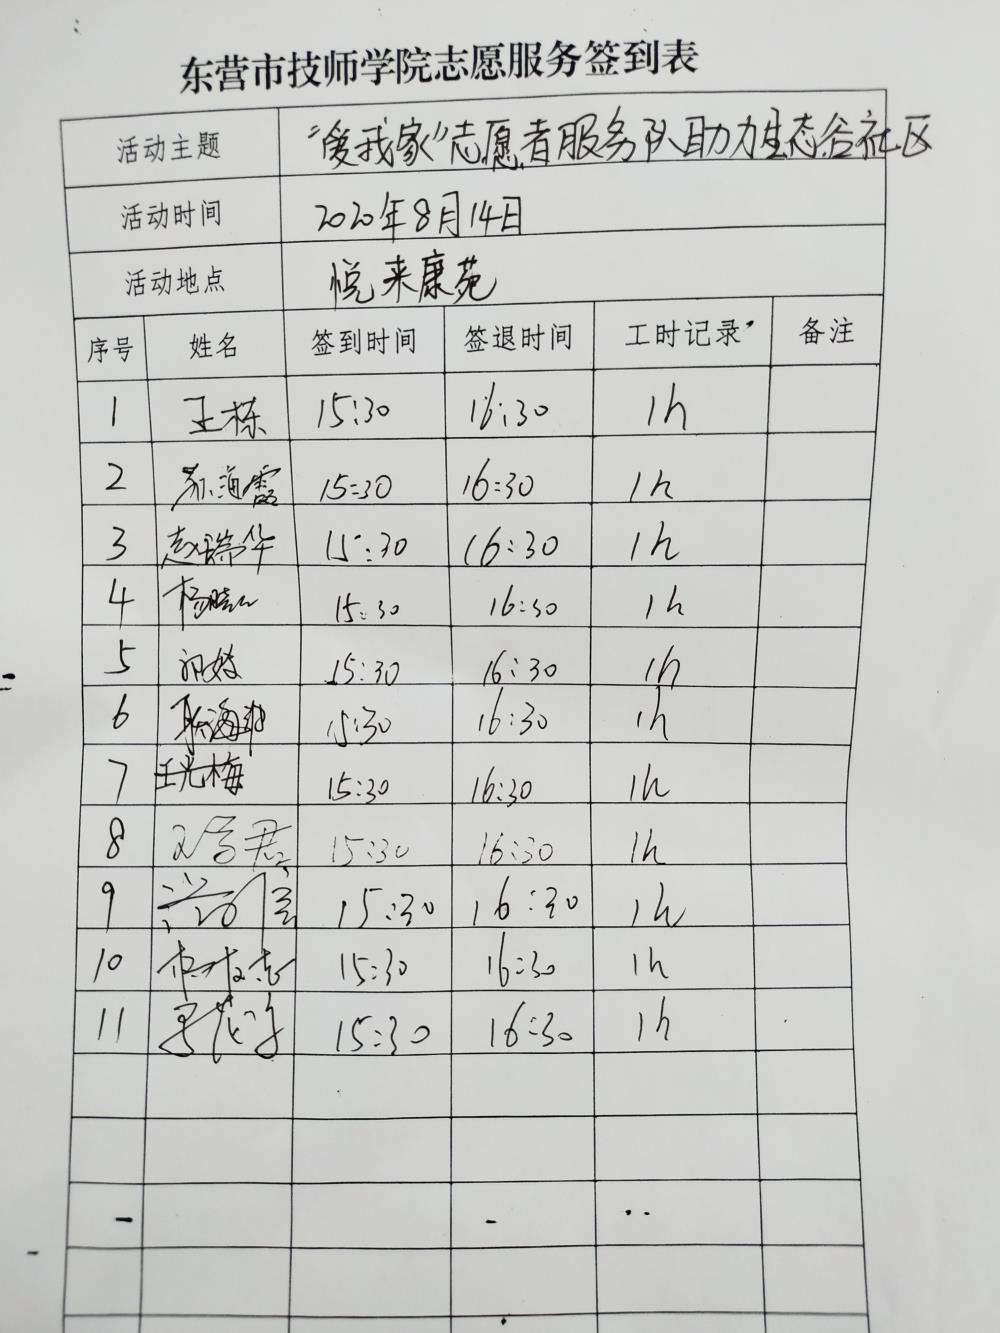 东营市技师学院志愿服务签到表
活动主题 “爱我家”志愿者服务队助力生态谷社区
活动时间 2020年8月14日
活动地点 悦来康苑
序号 姓名 签到时间 签退时间 工时记录 备注
1 王栋 15:30 16:30 1h
2 苏海霞 15:30 16:30 1h
3 赵瑞华 15:30 16:30 1h
4 15:30 16:30 1h
5 15:30 16:30 1h
6 15:30 16:30 1h
7 王光梅 15:30 16:30 1h
8 15:30 16:30 1h
9 15:30 16:30 1h
10 15:30 16:30 1h
11 15:30 16:30 1h